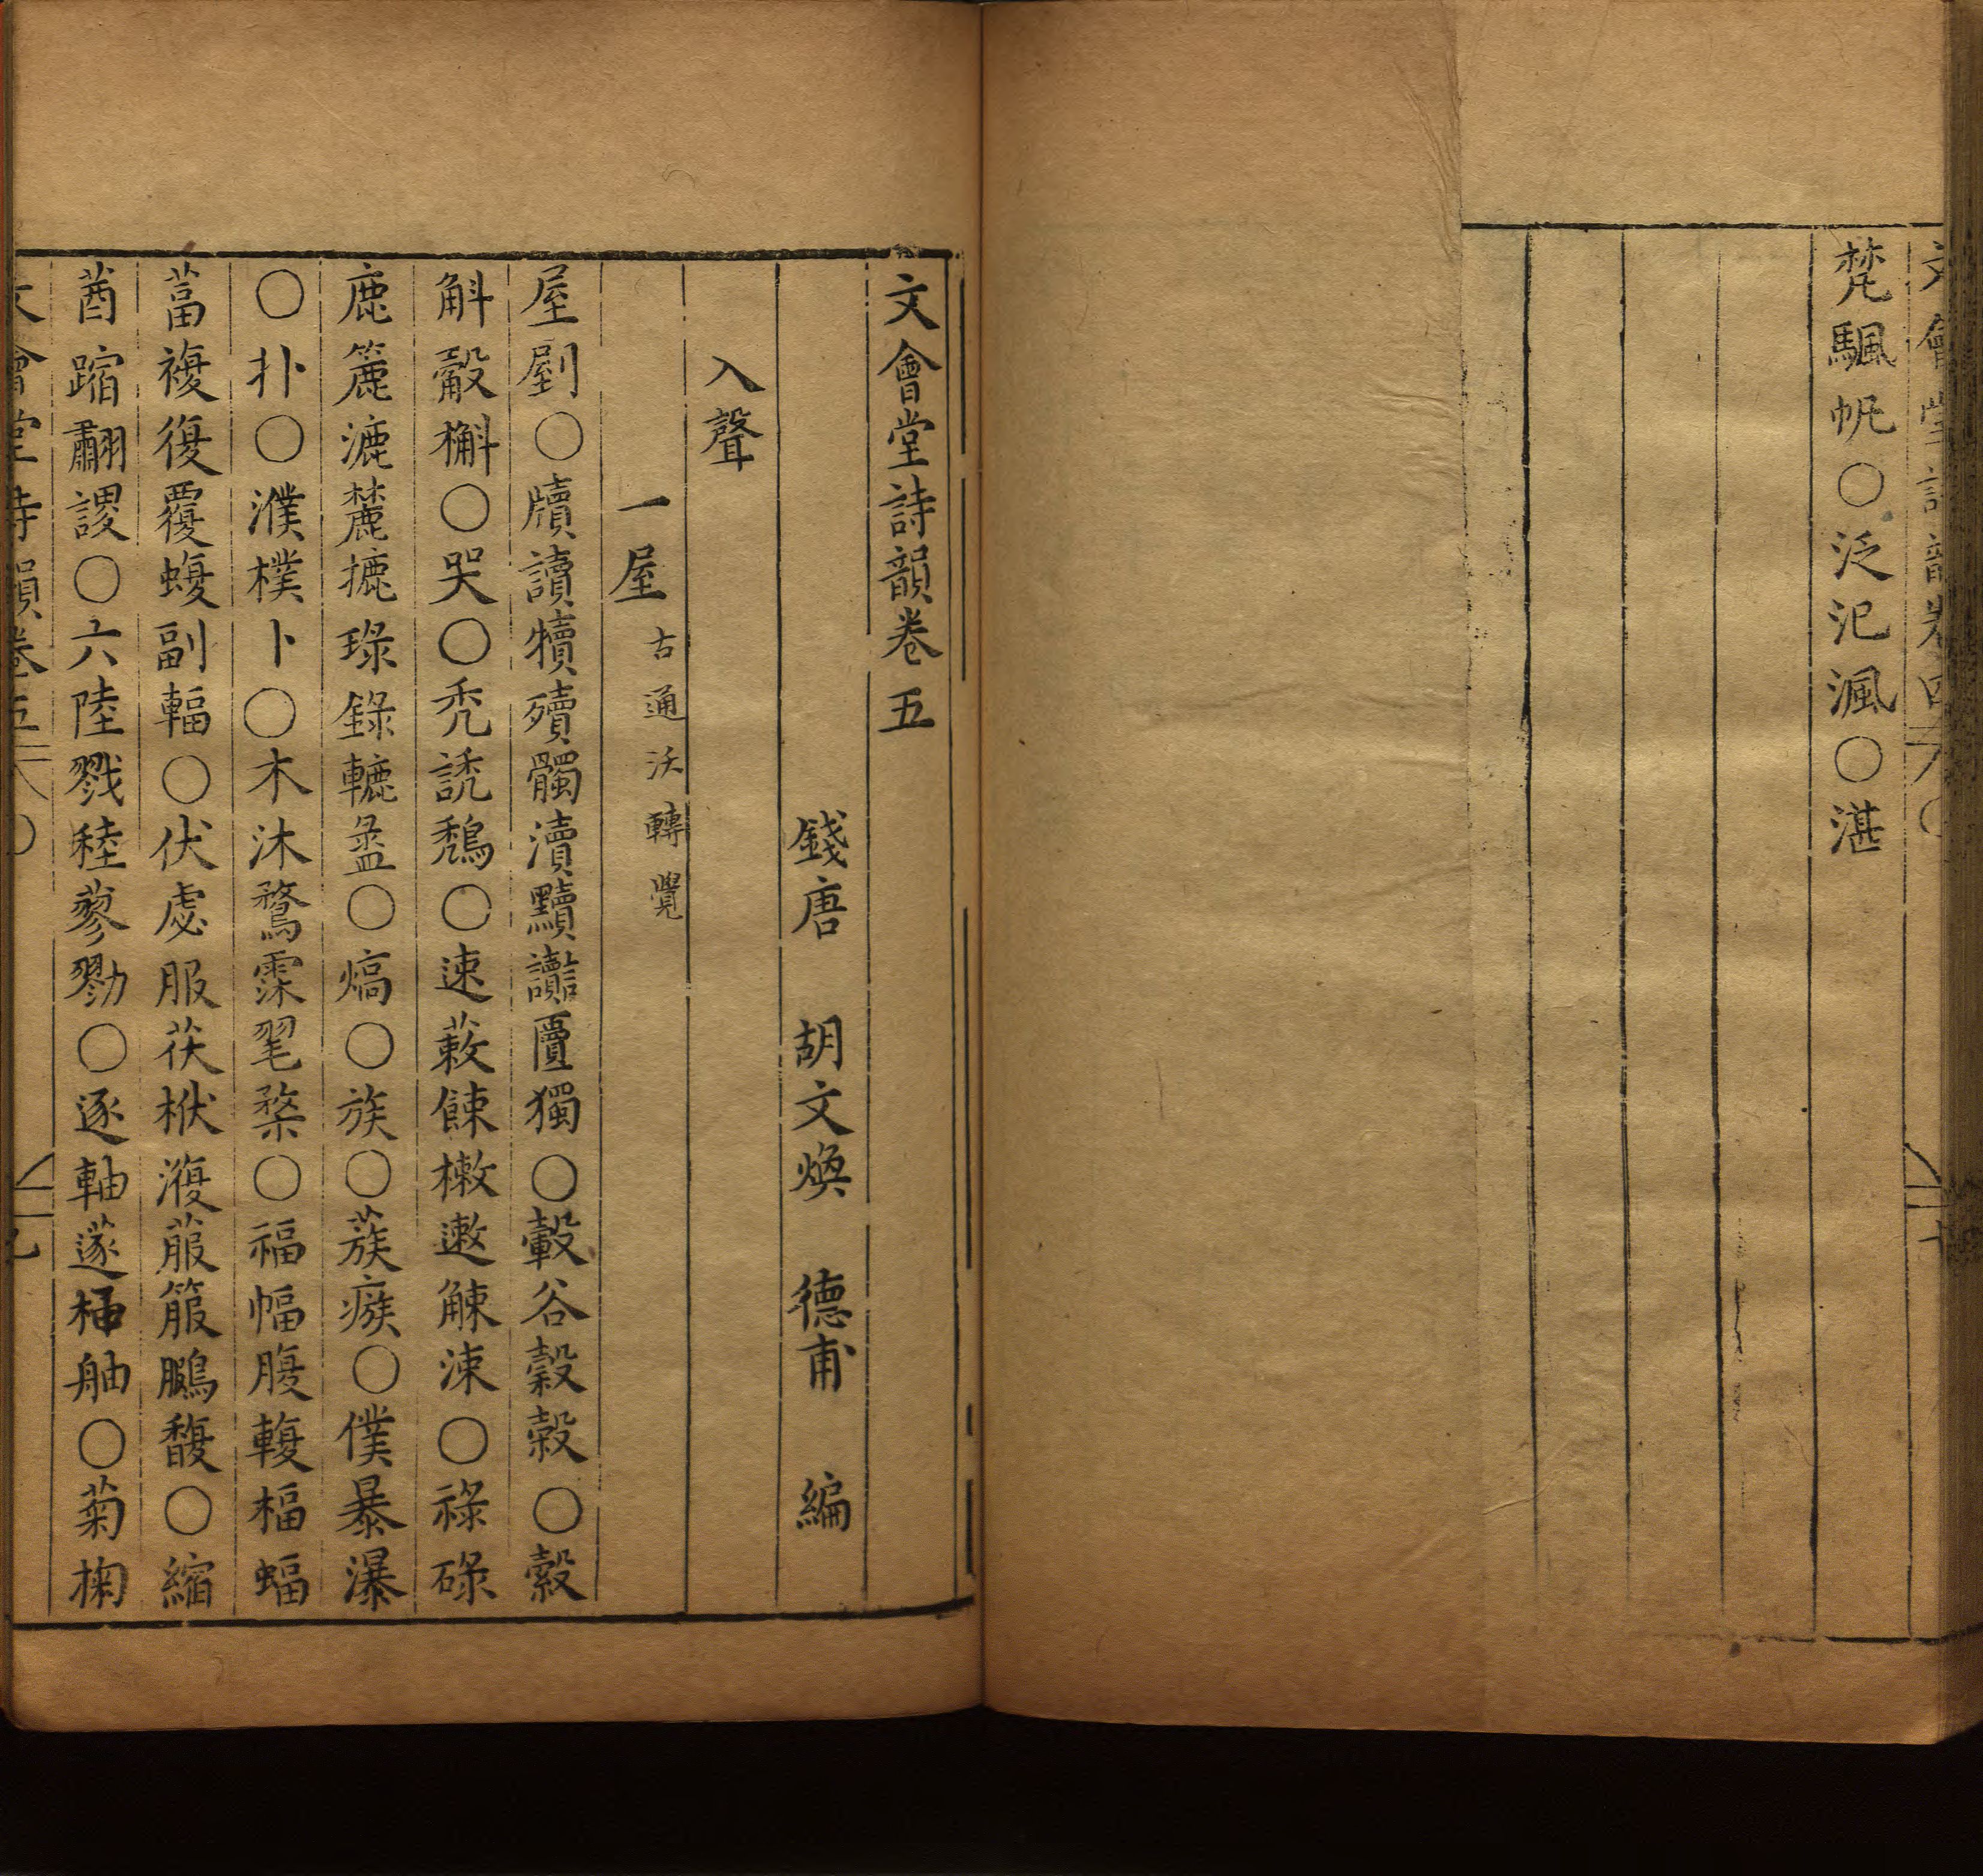 文會堂詩韻卷四
梵颿帆○泛氾渢○湛
文會堂詩韻卷五
錢唐 胡文煥 德甫 編
入聲
一屋古通沃轉覺
屋剭○牘讀犢殰髑瀆黷讟匵獨○轂谷穀榖○縠
斛觳槲○哭○禿誘鵚○速蔌餗樕遬觫涑○祿碌
鹿簏漉麓摝琭錄轆盝○熇○族○蔟瘯○僕暴瀑
○扑○濮樸卜○木沐鶩霂毣楘○福幅腹輹楅蝠
葍複復覆蝮副輻○伏虙服茯栿澓菔箙鵩馥○縮
莤蹜翿謖○六陸戮稑蓼勠○逐軸蓫柚舳○菊掬
文會堂詩韻卷五